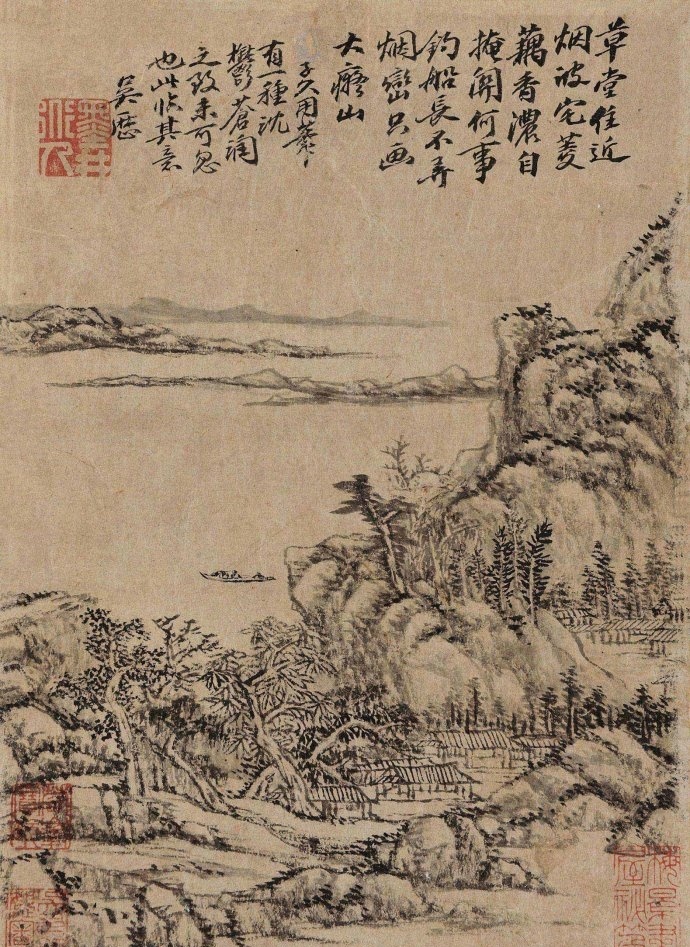 草堂住近
烟波宅菱
藕香濃自
掩關何事
釣船長不弄
烟巒只画
大癡山
子久用筆
有一種沈
鬱蒼潤
之致未可忽
也此其意
吳歷
墨井
梅景書
屋秘笈